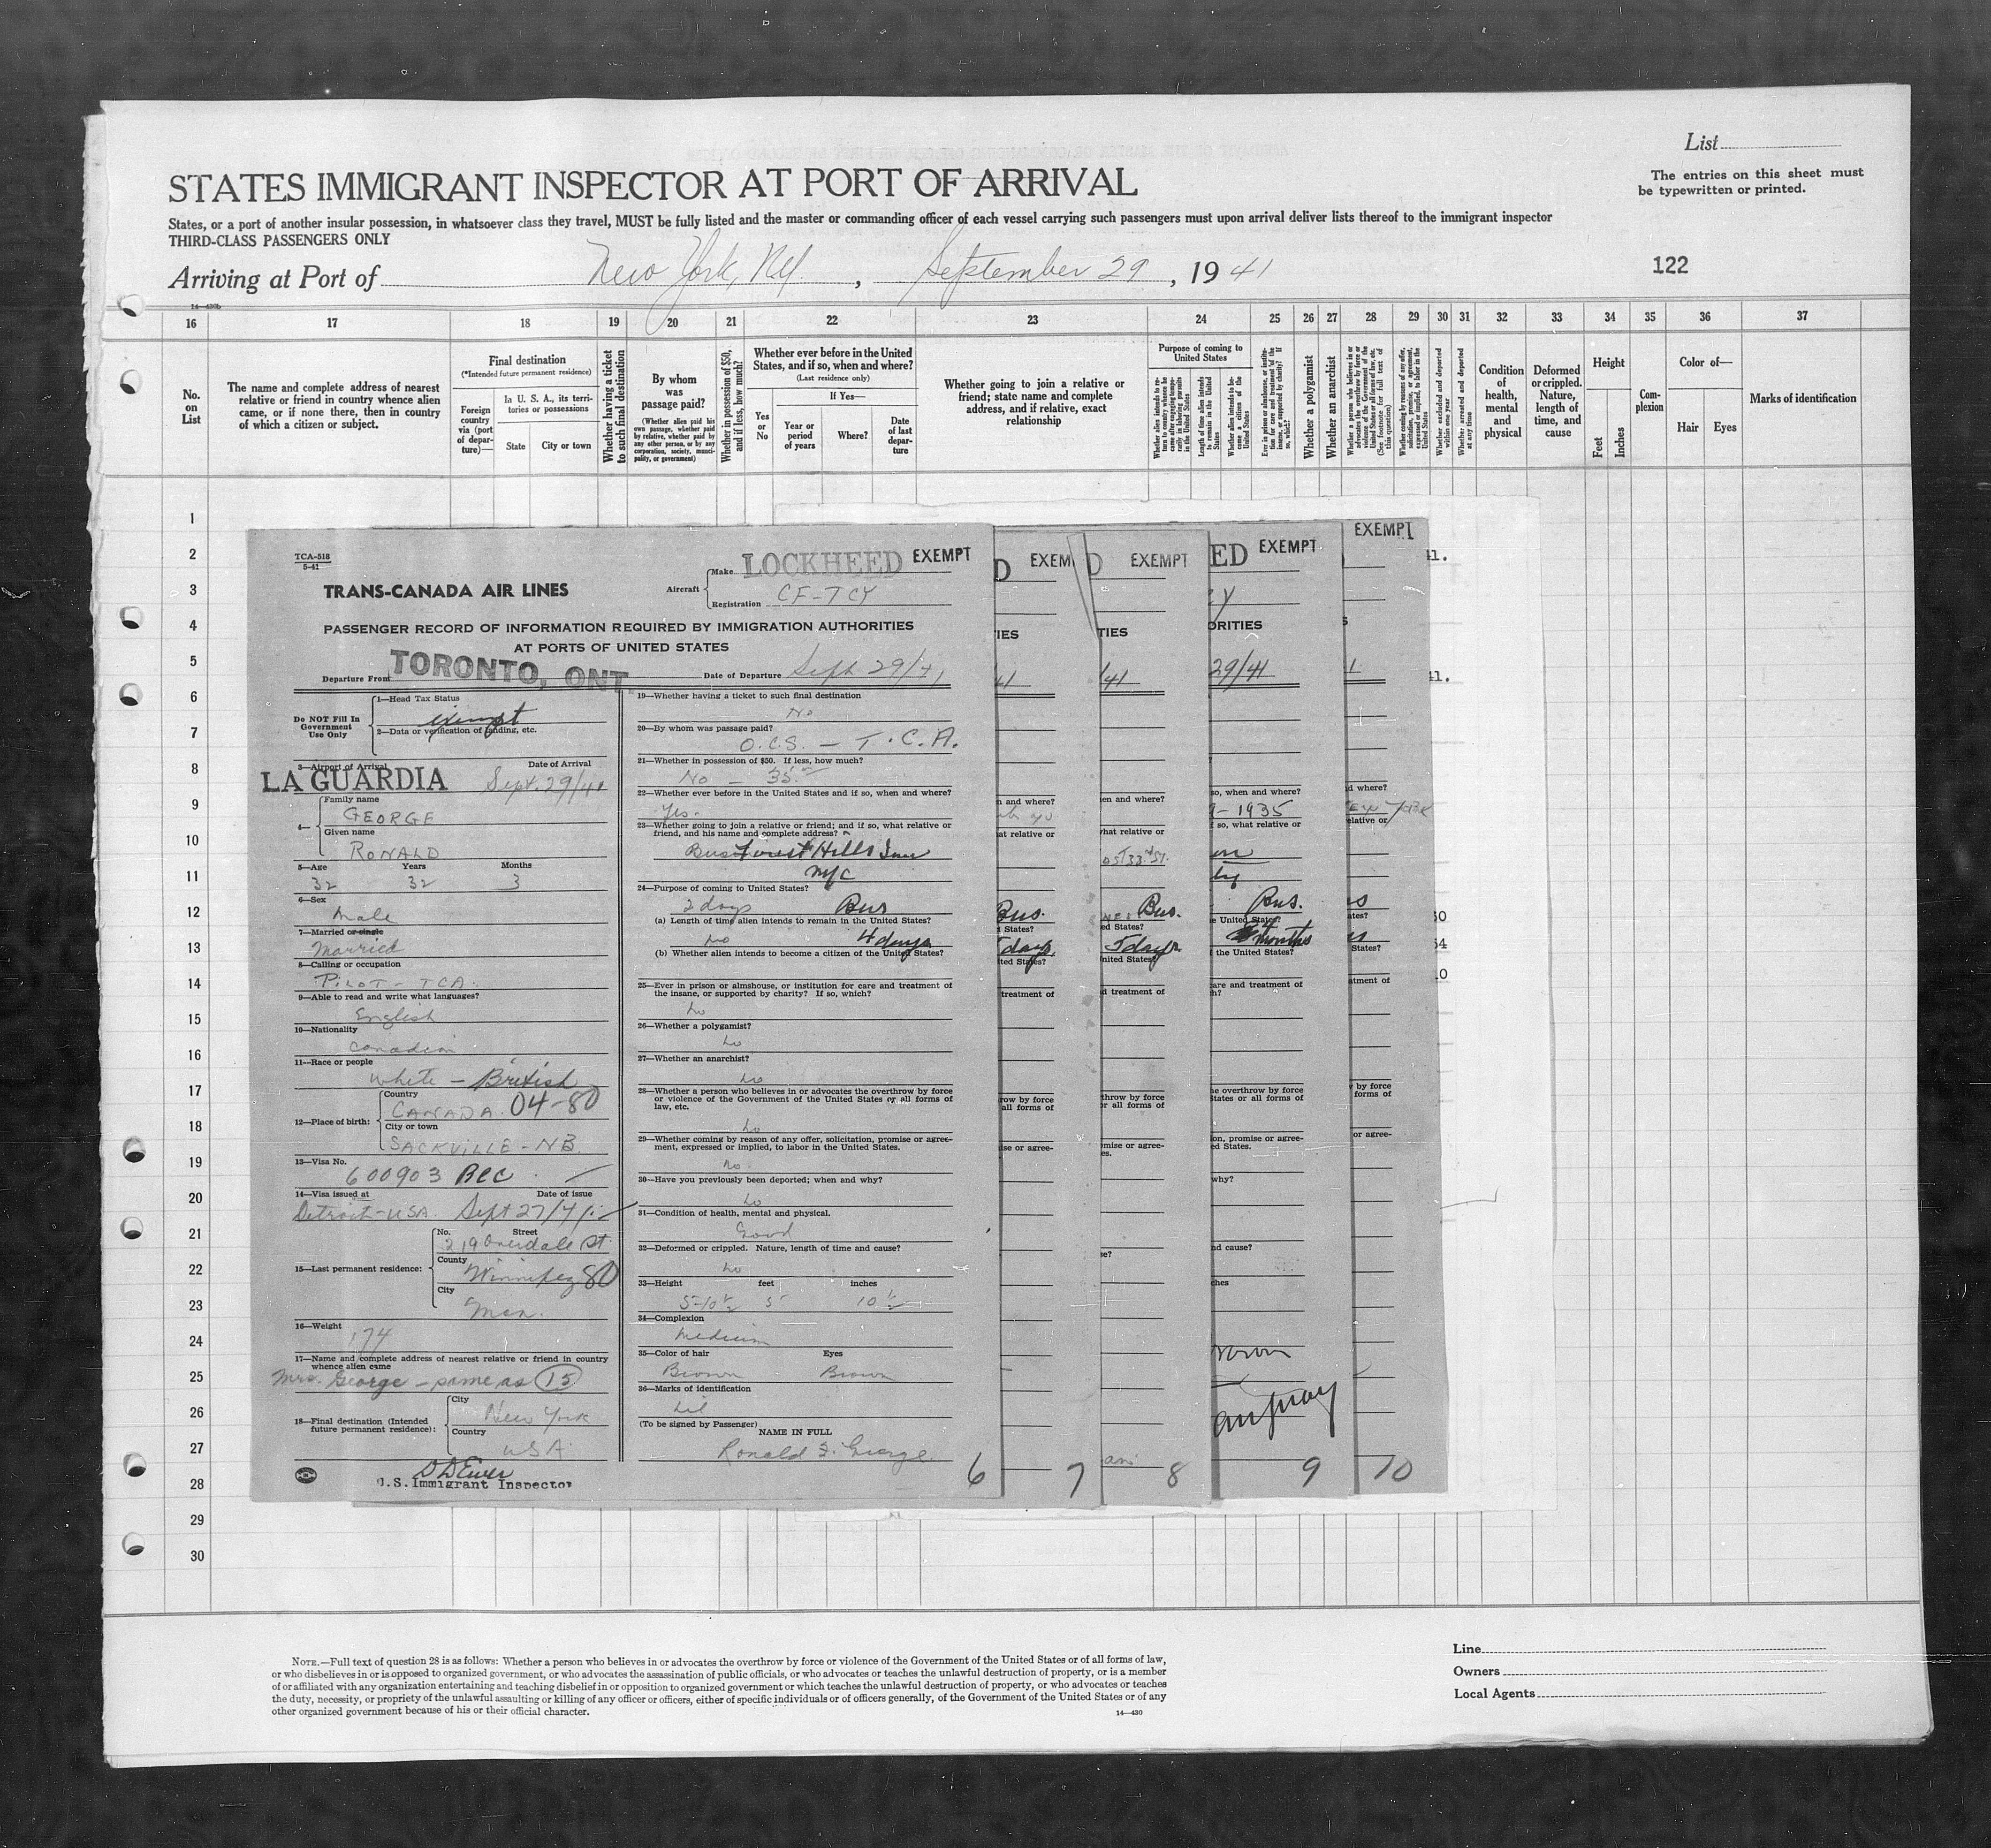 List
STATES IMMIGRANT INSPECTOR AT PORT OF ARRIVAL
The entries on this sheet must
be typewritten or printed.
States, or a port of another insular possession, in whatsoever class they travel, MUST be fully listed and the master or commanding officer of each vessel carrying such passengers must upon arrival deliver lists thereof to the immigrant inspector
THIRD-CLASS PASSENGERS ONLY
Arriving at Port of New York, N.Y., September 29, 1941
122
16 17 18 19 20 21 22 23 24 25 26 27 28 29 30 31 32 33 34 35 36 37
No. on List
The name and complete address of nearest
relative or friend in country whence alien
came, or if none there, then in country
of which a citizen or subject.
Final destination
(*Intended future permanent residence)
Foreign country via (port of departure)—
In U. S. A., its territories or possessions
State
City or town
Whether having a ticket to such final destination
By whom was passage paid?
(Whether alien paid his own passage, whether paid by relative, whether paid by any other person, or by any corporation, society, municipality, or government)
Whether in possession of $50, and if less, how much?
Whether ever before in the United States, and if so, when and where?
(Last residence only)
Yes or No
If Yes—
Year or period of years
Where?
Date of last departure
Whether going to join a relative or
friend; state name and complete
address, and if relative, exact
relationship
Purpose of coming to United States
Whether a polygamist
Whether an anarchist
Condition of health, mental and physical
Deformed or crippled. Nature, length of time, and cause
Height
Feet
Inches
Complexion
Color of—
Hair
Eyes
Marks of identification
1
2
3
4
5
6
7
8
9
10
11
12
13
14
15
16
17
18
19
20
21
22
23
24
25
26
27
28
29
30
TCA-518
5-41
TRANS-CANADA AIR LINES
Aircraft
Make LOCKHEED EXEMPT
Registration CF-TCY
PASSENGER RECORD OF INFORMATION REQUIRED BY IMMIGRATION AUTHORITIES
AT PORTS OF UNITED STATES
Departure From TORONTO, ONT.
Date of Departure Sept 29/41
Do NOT Fill In Government Use Only
1—Head Tax Status
exempt
2—Data or verification of landing, etc.
3—Airport of Arrival
Date of Arrival
LA GUARDIA Sept. 29/41
4—
Family name
GEORGE
Given name
RONALD
5—Age Years Months
32 32 3
6—Sex
Male
7—Married or single
Married
8—Calling or occupation
PILOT - TCA.
9—Able to read and write what languages?
English
10—Nationality
Canadian
11—Race or people
White - British
12—Place of birth:
Country
CANADA. 04-80
City or town
SACKVILLE - NB
13—Visa No.
600903 BCC
14—Visa issued at Date of issue
Detroit-USA. Sept 27/41
15—Last permanent residence:
No. Street
219 Overdale St.
County
Winnipeg 80
City
Man.
16—Weight
174
17—Name and complete address of nearest relative or friend in country
whence alien came
Mrs. George - same as 15
18—Final destination (Intended future permanent residence):
City
New York
Country
USA
U.S. Immigrant Inspector
19—Whether having a ticket to such final destination
No
20—By whom was passage paid?
O.C.S. - T.C.A.
21—Whether in possession of $50. If less, how much?
No - 35.
22—Whether ever before in the United States and if so, when and where?
Yes-
23—Whether going to join a relative or friend; and if so, what relative or
friend, and his name and complete address?
Bus Forest Hills Inn
NYC
24—Purpose of coming to United States?
2 days Bus
(a) Length of time alien intends to remain in the United States?
No 4 days
(b) Whether alien intends to become a citizen of the United States?
25—Ever in prison or almshouse, or institution for care and treatment of
the insane, or supported by charity? If so, which?
No
26—Whether a polygamist?
No
27—Whether an anarchist?
No
28—Whether a person who believes in or advocates the overthrow by force
or violence of the Government of the United States or all forms of
law, etc.
No
29—Whether coming by reason of any offer, solicitation, promise or agree-
ment, expressed or implied, to labor in the United States.
No
30—Have you previously been deported; when and why?
No
31—Condition of health, mental and physical.
Good
32—Deformed or crippled. Nature, length of time and cause?
No
33—Height feet inches
5-10½ 5 10½
34—Complexion
Medium
35—Color of hair Eyes
Brown Brown
36—Marks of identification
Nil
(To be signed by Passenger)
NAME IN FULL
Ronald F. George
6
7
8
9
10
EXEMPT
EXEMPT
EXEMPT
29/41
9-1935
Bus.
Bus.
Bus.
5 days
months
NOTE.—Full text of question 28 is as follows: Whether a person who believes in or advocates the overthrow by force or violence of the Government of the United States or of all forms of law,
or who disbelieves in or is opposed to organized government, or who advocates the assassination of public officials, or who advocates or teaches the unlawful destruction of property, or is a member
of or affiliated with any organization entertaining and teaching disbelief in or opposition to organized government or which teaches the unlawful destruction of property, or who advocates or teaches
the duty, necessity, or propriety of the unlawful assaulting or killing of any officer or officers, either of specific individuals or of officers generally, of the Government of the United States or of any
other organized government because of his or their official character.
14—430
Line
Owners
Local Agents